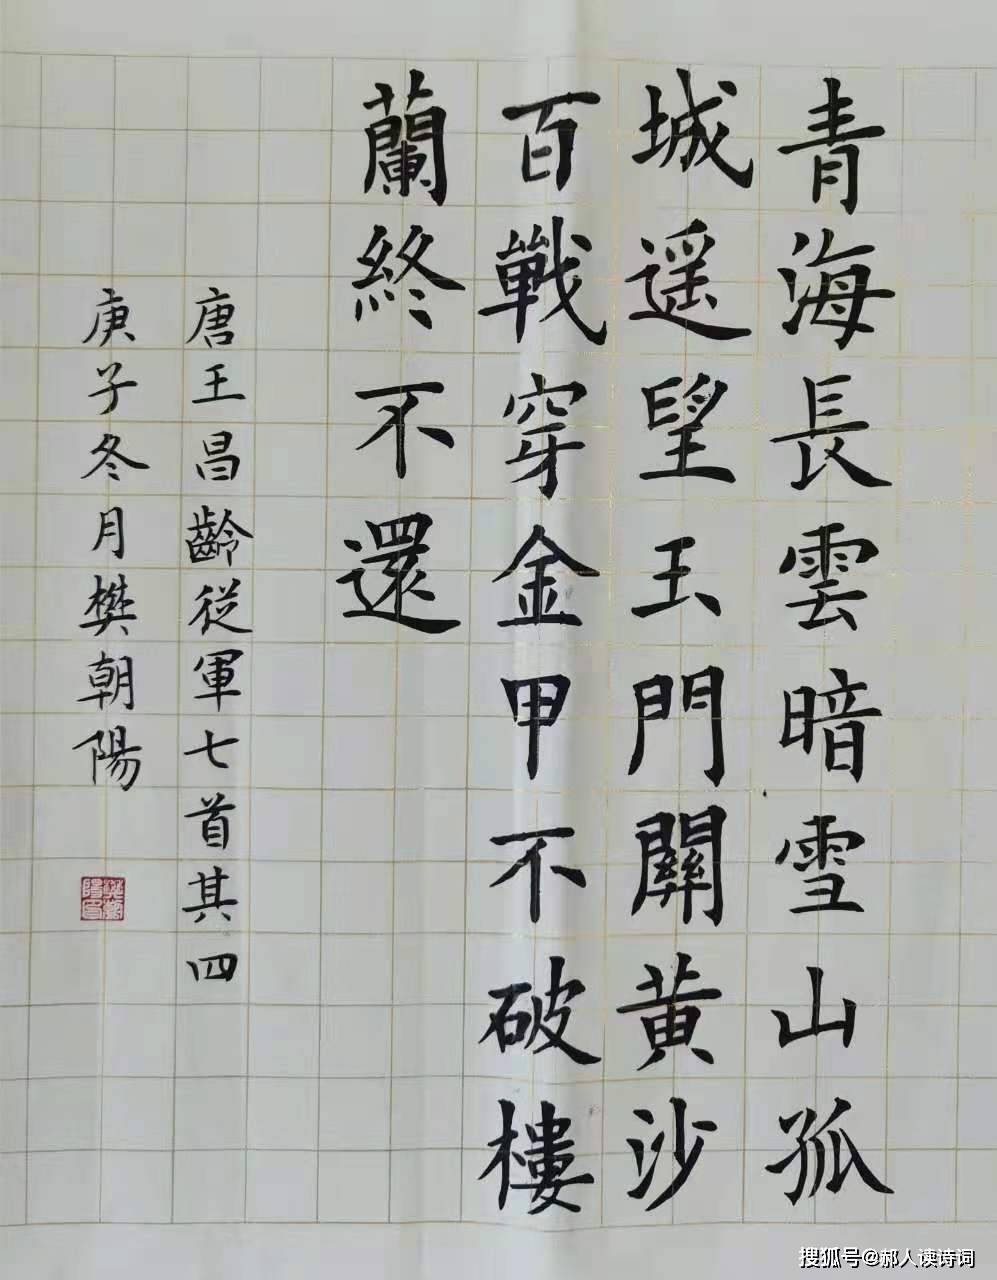 青海長雲暗雪山孤
城遥望玉門關黄沙
百戰穿金甲不破樓
蘭終不還
唐王昌齡從軍七首其四
庚子冬月樊朝陽
搜狐号@郝人读诗词